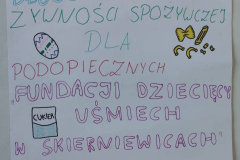 ŻYWNOŚCI SPOŻYWCZEJ
DLA
PODOPIECZNYCH
"FUNDACJI DZIECIĘCY
UŚMIECH
W SKIERNIEWICACH"
CUKIER